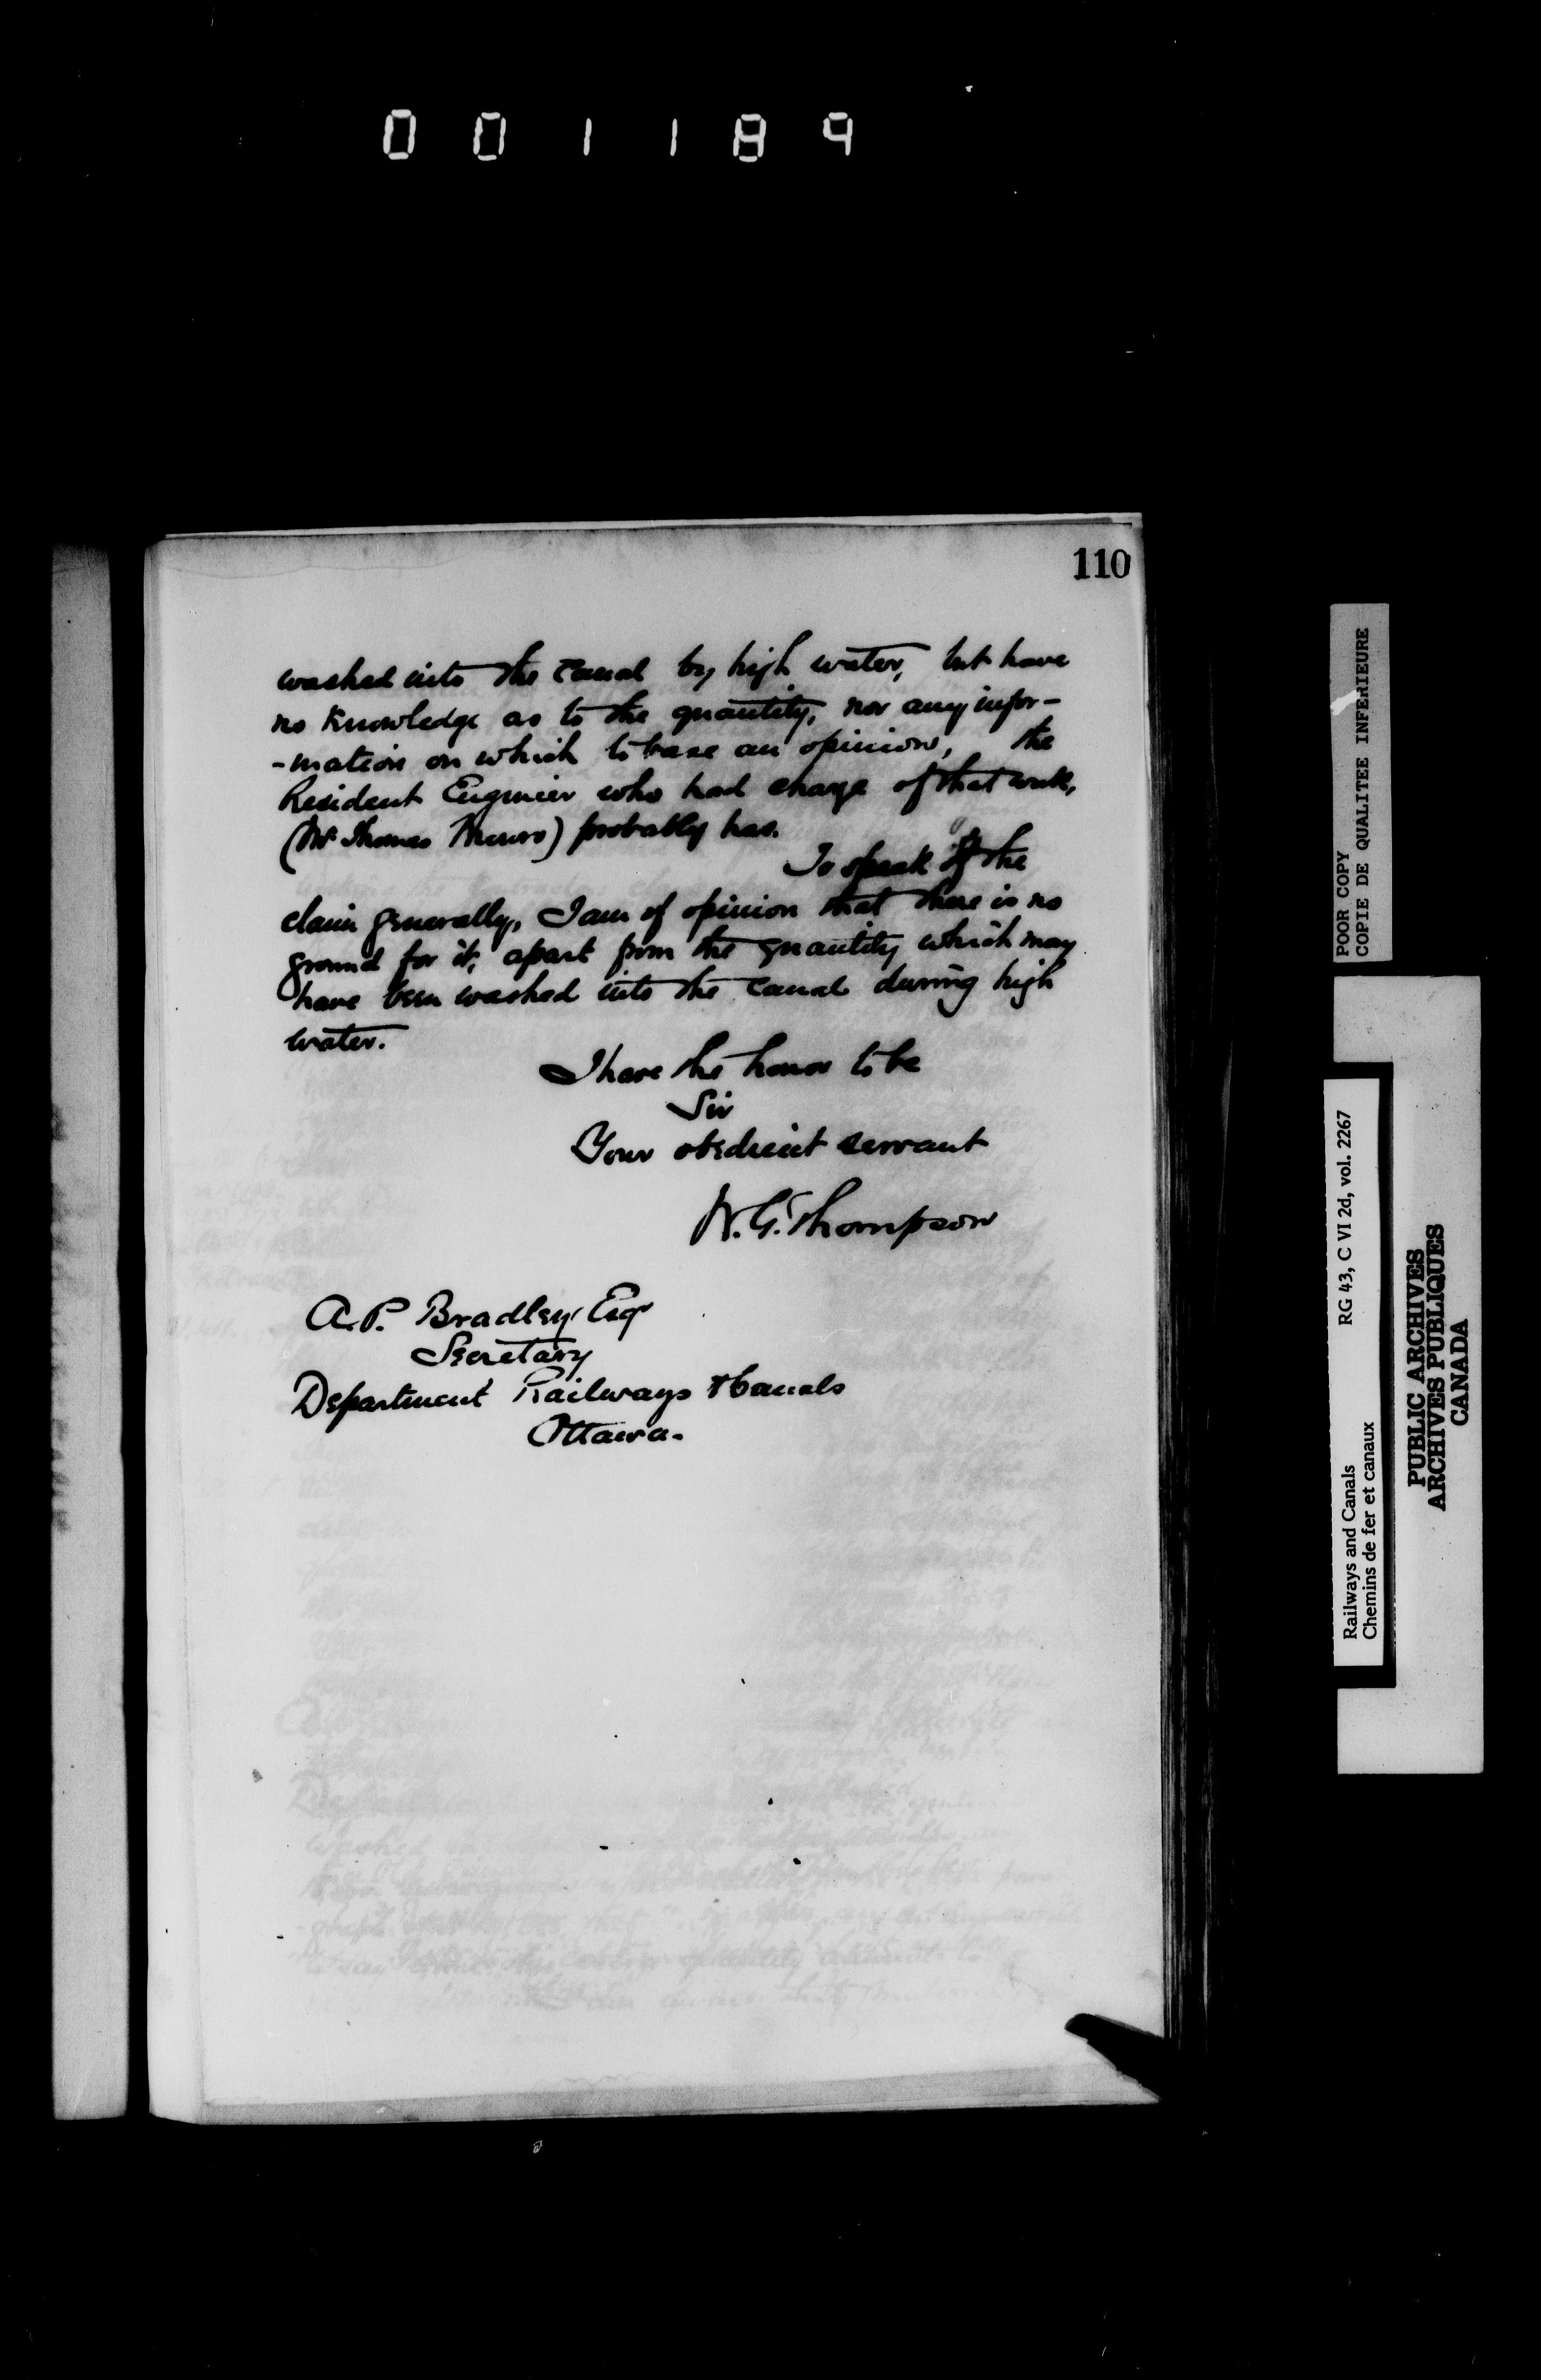 001189
110
washed into the Canal by high water, but have
no knowledge as to the quantity, nor any infor-
-mation on which to base an opinion, the
Resident Engineer who had charge of that work,
(Mr Thomas Munro) probably has.
To speak of the
claim generally, I am of opinion that there is no
ground for it, apart from the quantity which may
have been washed into the Canal during high
water.
I have the honor to be
Sir
Your obedient servant
W. G. Thompson
A. P. Bradley, Esqr
Secretary
Department Railways & Canals
Ottawa.
POOR COPY
COPIE DE QUALITEE INFERIEURE
RG 43, C VI 2d, vol. 2267
Railways and Canals
Chemins de fer et canaux
PUBLIC ARCHIVES
ARCHIVES PUBLIQUES
CANADA